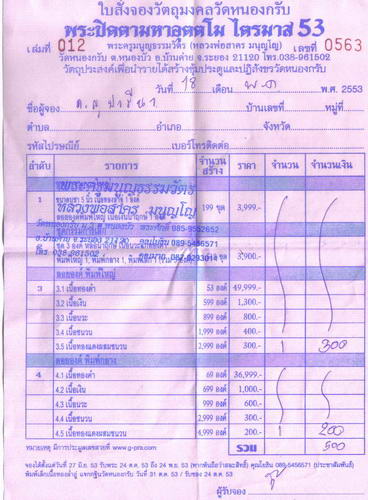 ใบสั่งจองวัตถุมงคลวัดหนองกรับ
พระปิดตามหาอุตตโม ไตรมาส 53
เล่มที่ 012 พระครูมนูญธรรมวัตร (หลวงพ่อสาคร มนุญโญ) เลขที่ 0563
วัดหนองกรับ ต.หนองบัว อ.บ้านค่าย จ.ระยอง 21120 โทร.038-961502
วัตถุประสงค์เพื่อนำรายได้สร้างซุ้มประตูและปฏิสังขรวัดหนองกรับ
วันที่ 18 เดือน พ.ค พ.ศ. 2553
ชื่อผู้จอง บ้านเลขที่ หมู่ที่
ตำบล อำเภอ จังหวัด
รหัสไปรษณีย์ เบอร์โทรติดต่อ
ลำดับ รายการ จำนวนสร้าง ราคา จำนวน จำนวนเงิน
พระครูมนูญธรรมวัตร
1 199 ชุด 3,999.-
หลวงพ่อสาคร มนุญโญ
ชุดกรรมการเล็ก
อ.บ้านค่าย จ.ระยอง 21120
โทร 038 961502
3,900.-
ลอยองค์ พิมพ์ใหญ่
3 3.1 เนื้อทองคำ 53 องค์ 49,999.-
3.2 เนื้อเงิน 599 องค์ 1,300.-
3.3 เนื้อนวะ 899 องค์ 800.-
3.4 เนื้อชนวน 1,999 องค์ 400.-
3.5 เนื้อทองแดงผสมชนวน 2,999 องค์ 300.- 1 300
ลอยองค์ พิมพ์กลาง
4 4.1 เนื้อทองคำ 69 องค์ 36,999.-
4.2 เนื้อเงิน 699 องค์ 1,000.-
4.3 เนื้อนวะ 999 องค์ 600.-
4.4 เนื้อชนวน 2,999 องค์ 300.-
4.5 เนื้อทองแดงผสมชนวน 4,999 องค์ 200.- 1 200
หมายเหตุ มีการประมูลเหดสวยที่ www.g-pra.com รวม 500
จองได้ตั้งแต่วันที่ 27 มิ.ย. 53 รับพระ 24 ต.ค. 53 ถึง 24 พ.ย. 53 (หากพ้นถือว่าสละสิทธิ์) คุณโยธิน 089-5456571 (ประชาสัมพันธ์)
พิมพ์เล็กเนื้อทองล่ำอู่ แจกกฐินวัดหนองกรับ วันที่ 31 ต.ค. 53 / รับของ 24 ต.ค. 53
ผู้รับจอง